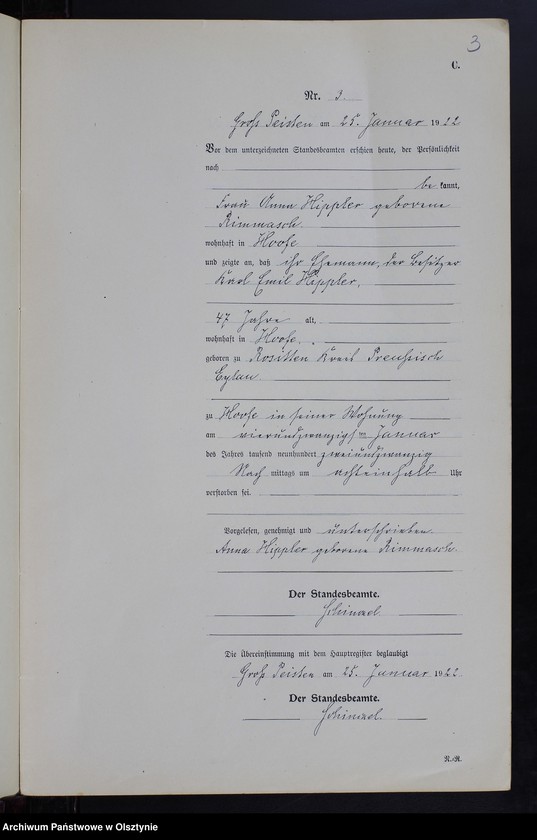 3
C.
Nr. 3.
Groß Peisten am 25. Januar 1922
Vor dem unterzeichneten Standesbeamten erschien heute, der Persönlichkeit
nach
be kannt,
Frau Anna Hippler geborene
Rimmasch.
wohnhaft in Hoofe
und zeigte an, daß ihr Ehemann, der Besitzer
Karl Emil Hippler,
47 Jahre alt,
wohnhaft in Hoofe.
geboren zu Rositten Kreis Preußisch
Eylau
zu Hoofe in seiner Wohnung
am vierundzwanzigsten Januar
des Jahres tausend neunhundert zweiundzwanzig
Nach mittags um achteinhalb Uhr
verstorben sei.
Vorgelesen, genehmigt und unterschrieben
Anna Hippler geborene Rimmasch.
Der Standesbeamte.
Schinael.
Die Übereinstimmung mit dem Hauptregister beglaubigt
Groß Peisten am 25. Januar 1922
Der Standesbeamte.
Schinael.
R.-R.
Archiwum Państwowe w Olsztynie